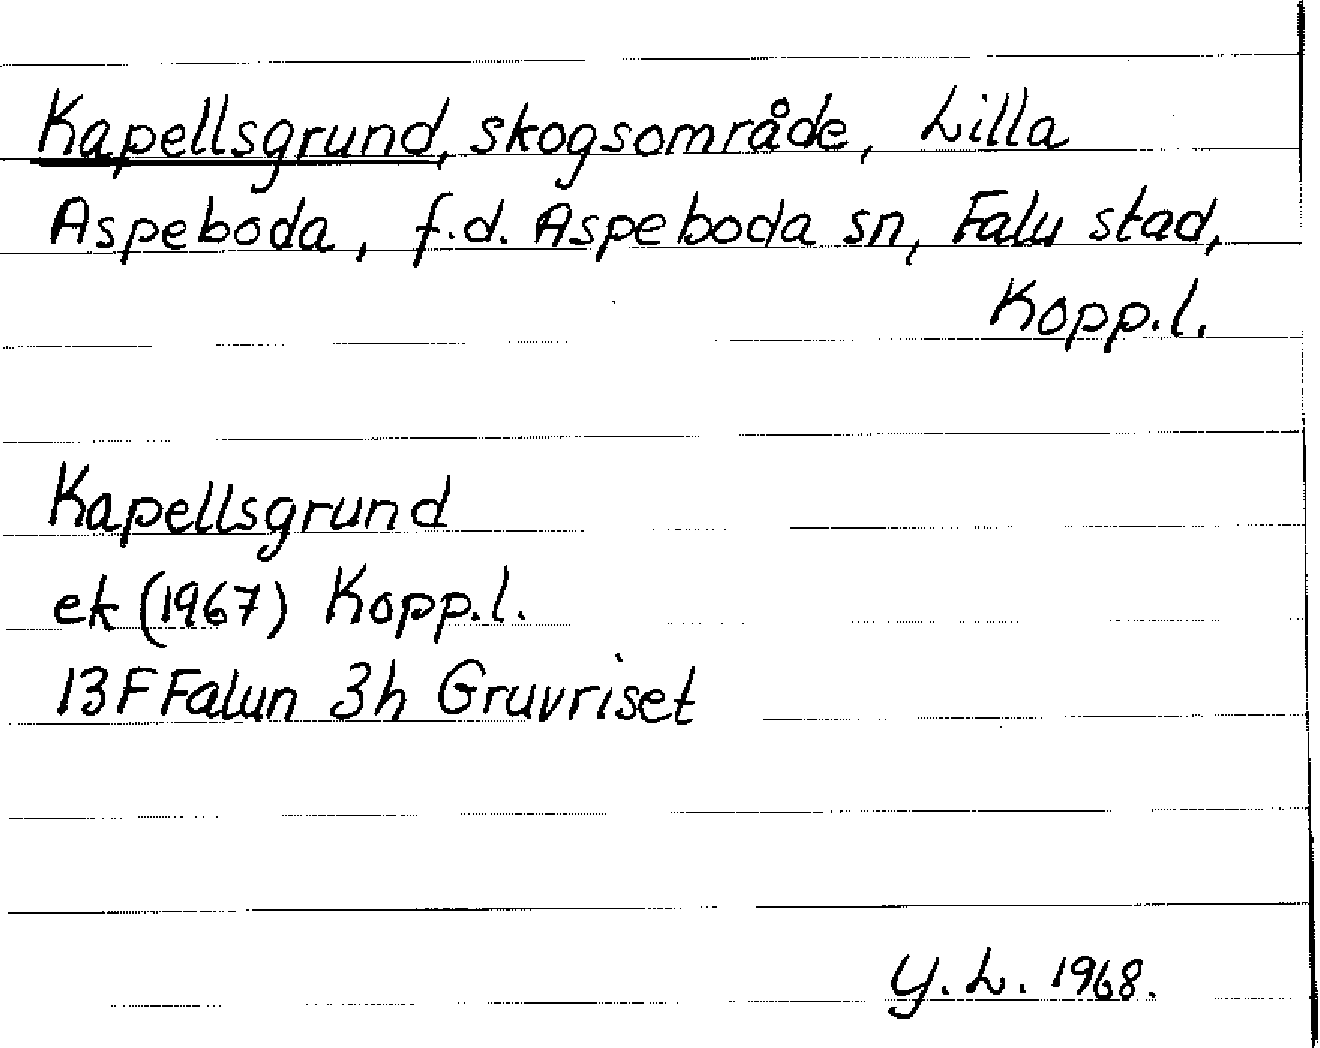 Kapellsgrund, skogsområde, Lilla
Aspeboda, f.d. Aspeboda sn, Falu stad,
Kopp.l.
Kapellsgrund
ek (1967) Kopp.l.
13F Falun 3h Gruvriset
Y.L. 1968.